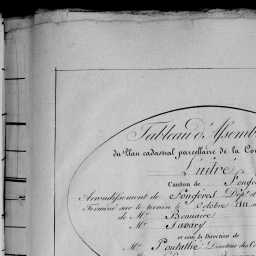 Tableau d'Assemb
du Plan cadastral parcellaire de la Co
Luitré
Canton de Fougè
Arrondissement de Fougères Dép.
Terminé sur le terrain le Octobre
de Mr.
Mr. Savary
et sous la Direction de
Mr. Pontallié Directeur des Co